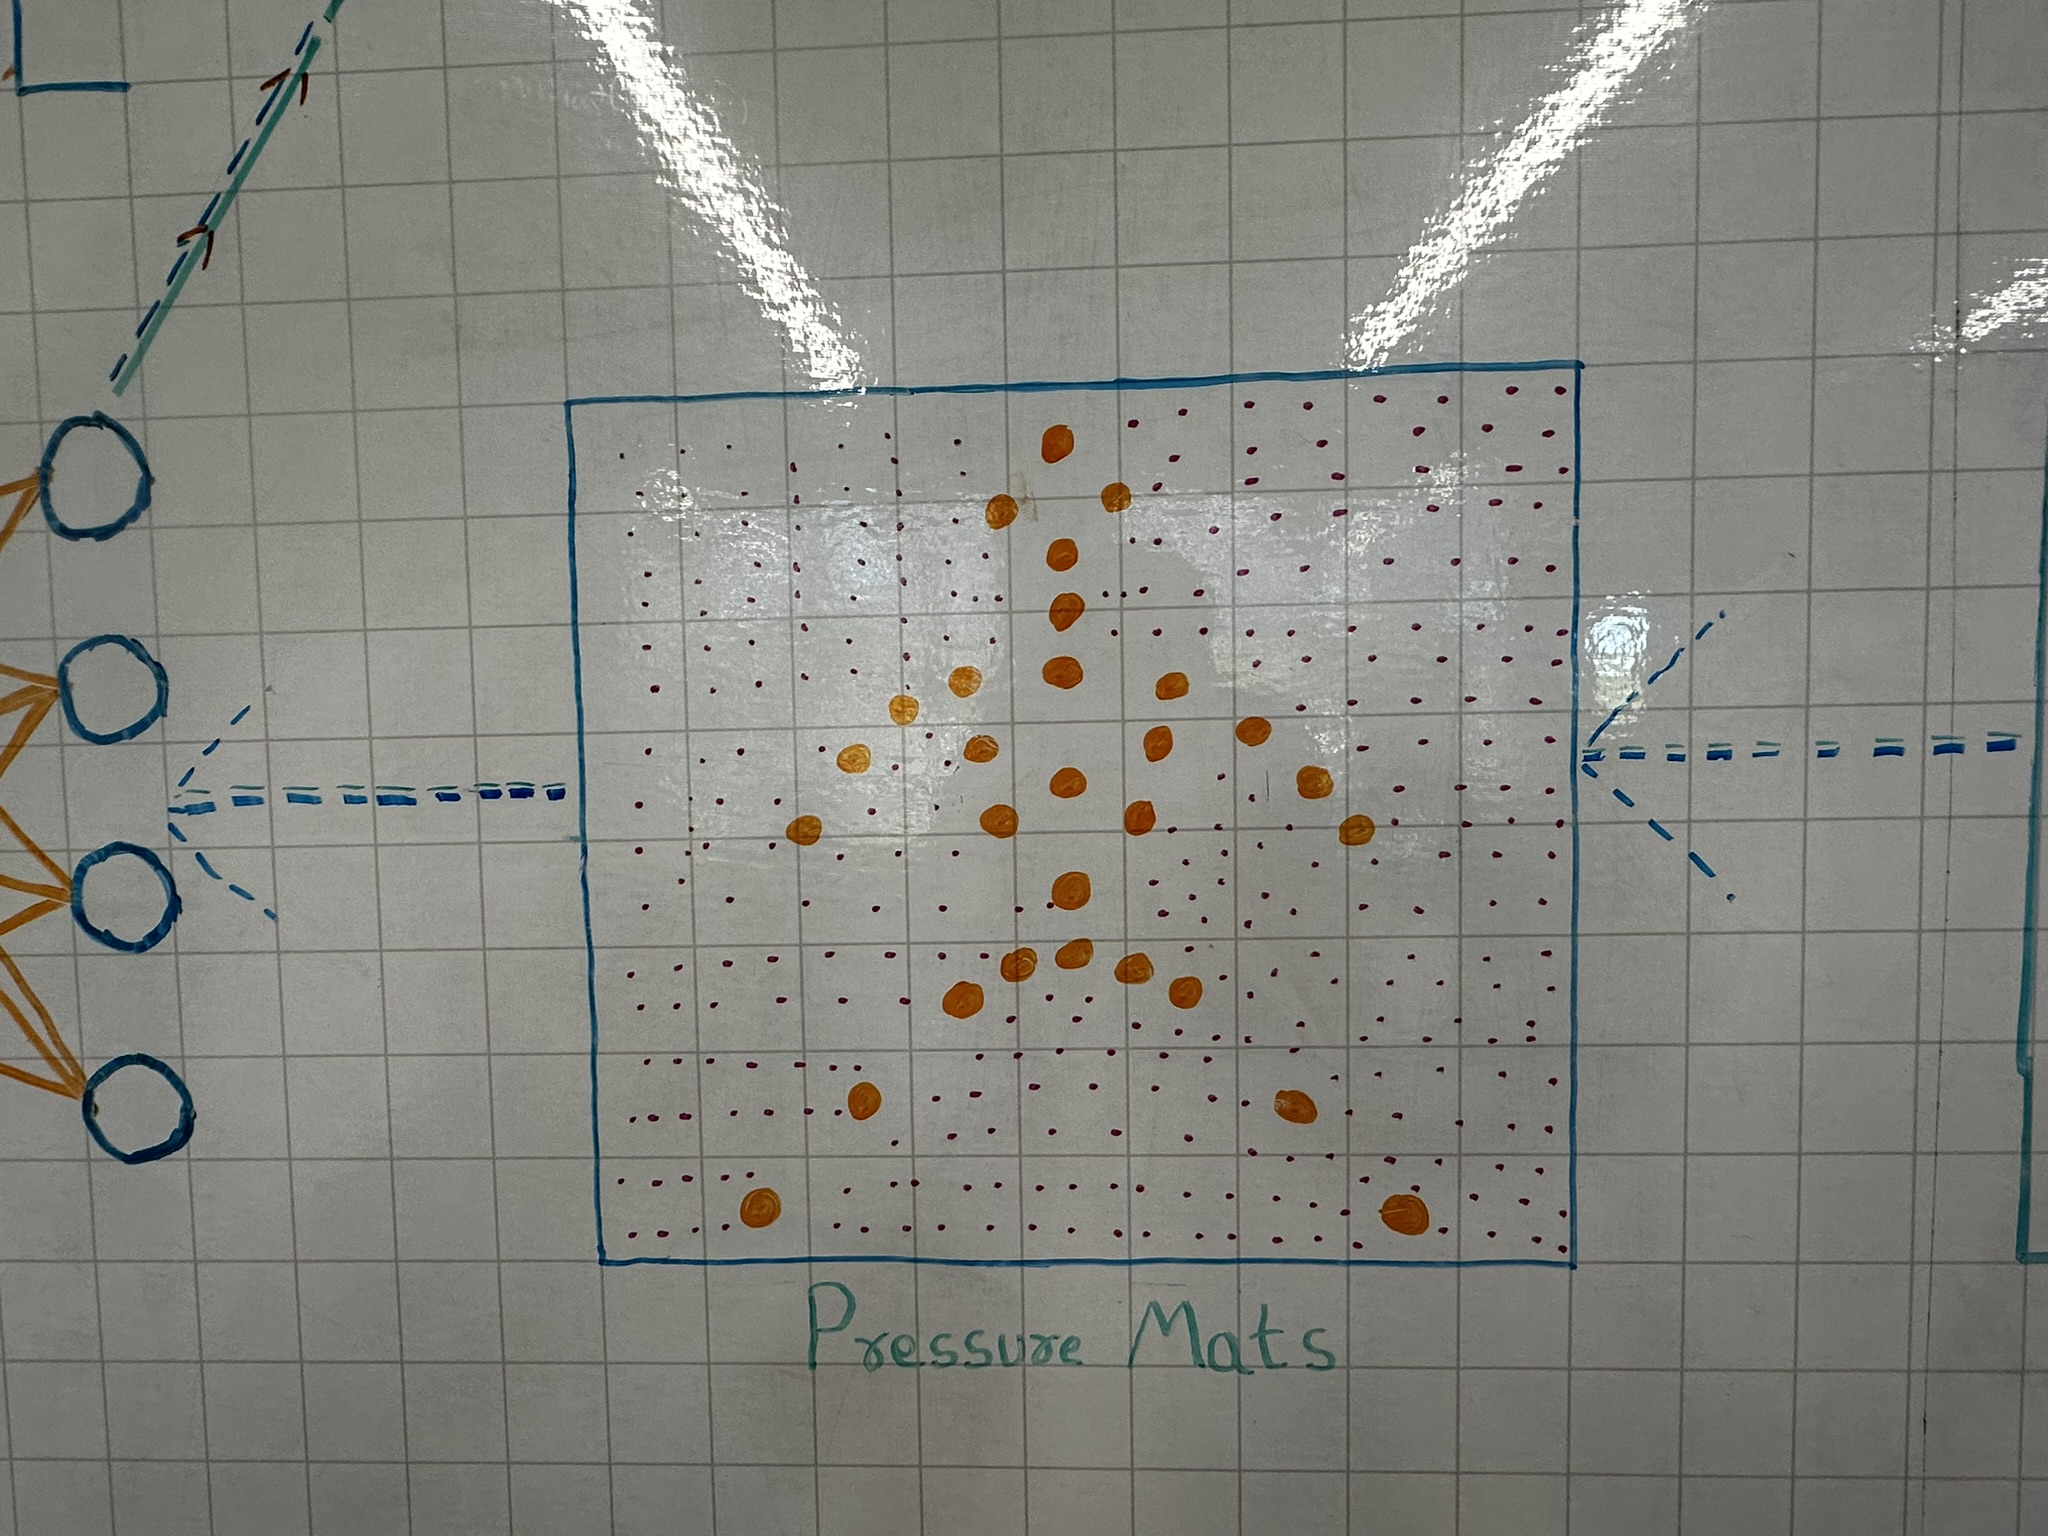 Pressure Mats